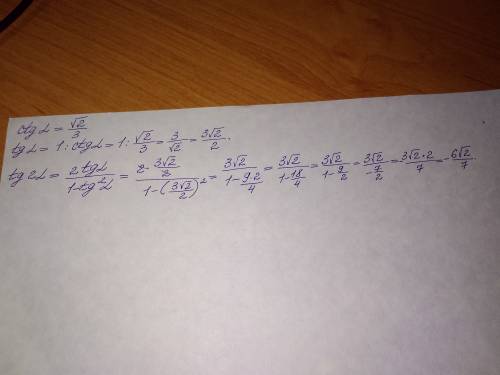 ctg α = √2/3
tg α = 1 : ctg α = 1 : √2/3 = 3/√2 = 3√2/2.
tg 2α = 2 tg α/(1 - tg²α) = (2 · 3√2/2)/(1 - (3√2/2)²) = 3√2/(1 - 9·2/4) = 3√2/(1 - 18/4) = 3√2/(1 - 9/2) = 3√2/(-7/2) = -3√2·2/7 = -6√2/7.